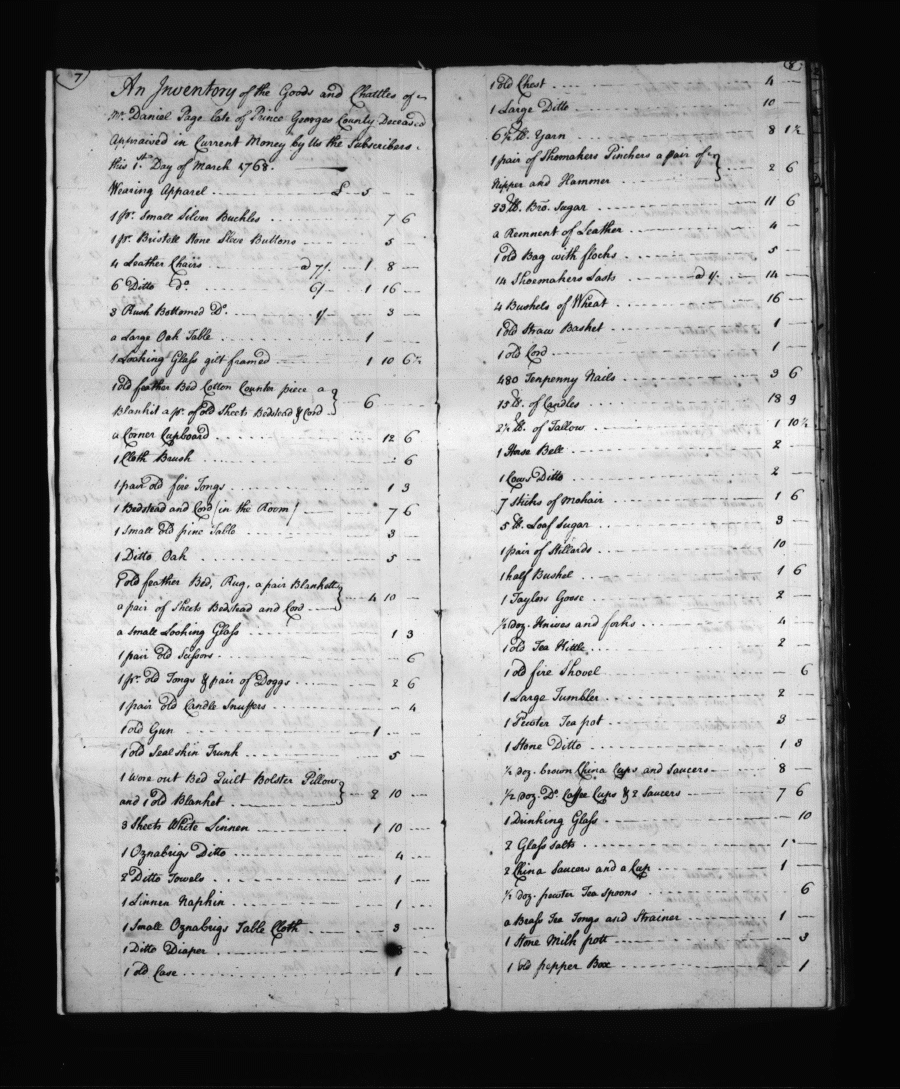 7
An Inventory of the Goods and Chattles of
Mr. Daniel Page late of Prince Georges County Deceased
Appraised in Current Money by Us the Subscribers.
this 1st. Day of March 1768.
Wearing Apparel £ 5
1 pr. Small Silver Buckles 7 6
1 pr. Bristole Stone Slive Buttons 5
4 Leather Chairs @ 7/. 1 8
6 Ditto do. 6/ 1 16
3 Rush Bottomed Do. 1/ 3
a Large Oak Table 1
1 Looking Glass gilt framed 1 10 6
1 old feather Bed Cotton Counter piece a
Blankit a pr. of old Sheets Bedstead & Cord 6
a Corner Cupboard 12 6
1 Cloth Brush 6
1 pair old fire Tongs 1 3
1 Bedstead and Cord (in the Room) 7 6
1 small old pine Table 3
1 Ditto Oak 5
1 old feather Bed, Rug, a pair Blanketts
a pair of Sheets Bedstead and Cord 4 10
a small Looking Glass 1 3
1 pair old Scissors 6
1 pr. old Tongs & pair of Doggs 2 6
1 pair old Candle Snuffers 4
1 old Gun 1
1 old Seal skin Trunk 5
1 wore out Bed Quilt Bolster Pillow
and 1 old Blanket 2 10
3 Sheets White Linnen 1 10
1 Oznabrigs Ditto 4
2 Ditto Towels 1
1 Linnen Napkin 1
1 Small Oznabrigs Table Cloth 3
1 Ditto Diaper
1 old Case 1
8
1 old Chest 4
1 Large Ditto 10
6½ lb. Yarn 8 1½
1 pair of Shomakers Pinchers a pair of
Nipper and Hammer 2 6
23 lb. Bro. Sugar 11 6
a Remnent of Leather 4
1 old Bag with flocks 5
14 Shoemakers Lasts @ 1/. 14
4 Bushels of Wheat 16
1 old Straw Basket 1
1 old Cord 1
480 Tenpenny Nails 3 6
15 lb. of Candles 18 9
2½ lb. of Tallow 1 10½
1 Horse Bell 2
1 Cows Ditto 2
7 Sticks of Mohair 1 6
5 lb. Loaf Sugar 3
1 pair of Stillards 10
1 half Bushel 1 6
1 Taylors Goose 2
½ doz. Knives and forks 4
1 old Tea Kittle 2
1 old fire Shovel 6
1 Large Tumbler 2
1 Pewter Tea pot 3
1 Stone Ditto 1 3
½ doz. brown China Cups and Saucers 8
1/2 doz. Do. Coffee Cups & 2 Saucers 7 6
1 Drinking Glass 10
2 Glass Salts 1
2 China Saucers and a Cup 1
½ doz. pewter Tea Spoons 6
a Brass Tea Tongs and Strainer 1
1 Stone Milk pott 3
1 old pepper Box 1